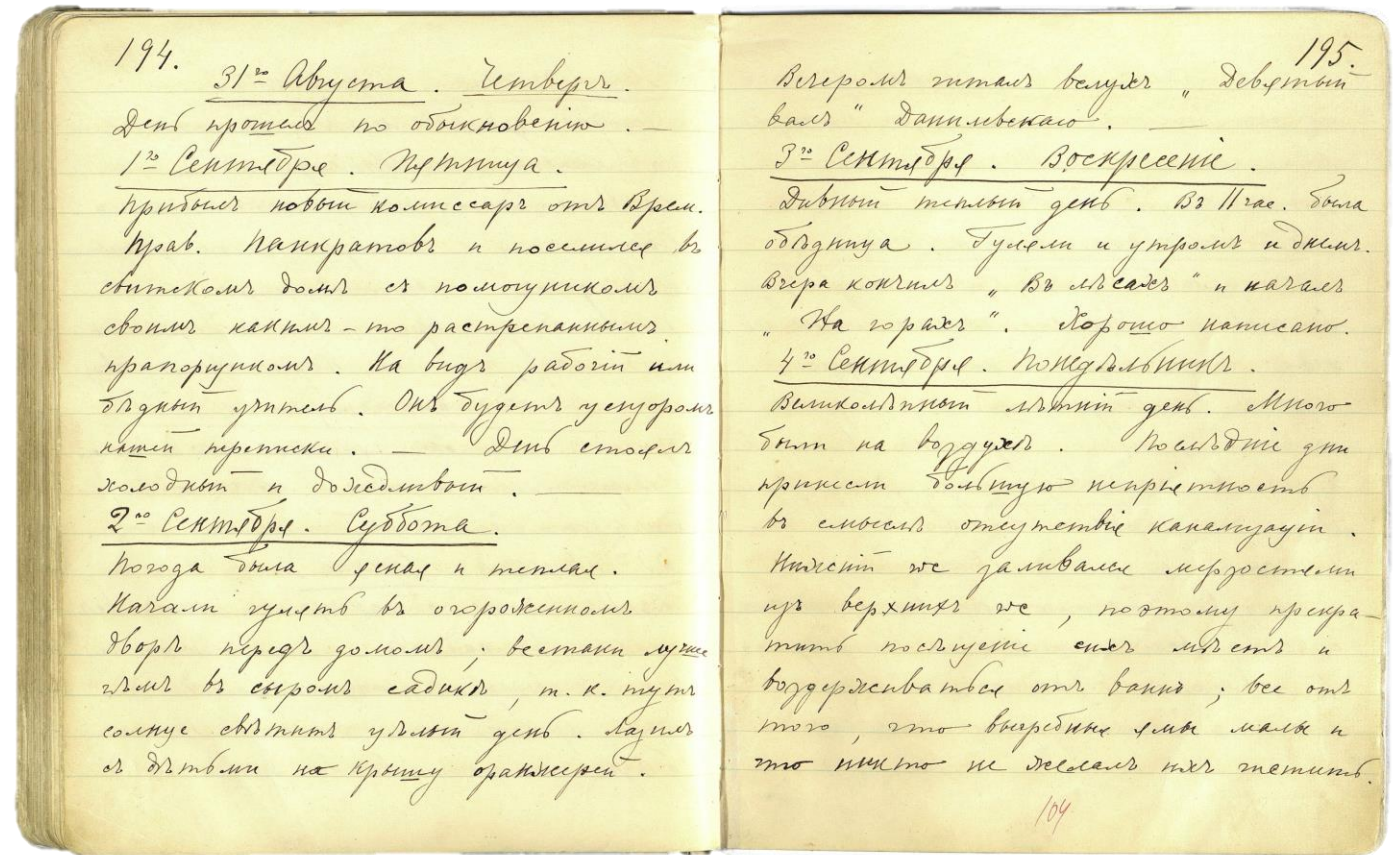 194.
31го Августа. Четвергъ.
День прошелъ по обыкновенію. —
1го Сентября. Пятница.
Прибылъ новый комиссаръ отъ Врем.
Прав. Панкратовъ и поселился въ
свитскомъ домѣ съ помощникомъ
своимъ какимъ-то растрепаннымъ
прапорщикомъ. На видъ рабочій или
бѣдный учитель. Онъ будетъ цензоромъ
нашей переписки. — День стоялъ
холодный и дождливый. —
2го Сентября. Суббота.
Погода была ясная и теплая.
Начали гулять въ огороженномъ
дворѣ передъ домомъ; все-таки лучше
чѣмъ въ сыромъ садикѣ, т. к. тутъ
солнце свѣтитъ цѣлый день. Лазилъ
съ дѣтьми на крышу оранжерей.
195.
Вечеромъ читалъ вслухъ „Девятый
валъ“ Данилевскаго. —
3го Сентября. Воскресеніе.
Дивный теплый день. Въ 11 час. была
обѣдница. Гуляли и утромъ и днемъ.
Вчера кончилъ „Въ лѣсахъ“ и началъ
„На горахъ“. Хорошо написано.
4го Сентября. Понедѣльникъ.
Великолѣпный лѣтній день. Много
были на воздухѣ. Послѣдніе дни
принесли большую непріятность
въ смыслѣ отсутствія канализаціи.
Нижній wc заливался мерзостями
изъ верхнихъ wc, поэтому прекра-
тить посѣщеніе сихъ мѣстъ и
воздерживаться отъ ваннъ; все отъ
того, что выгребныя ямы малы и
что никто не желалъ ихъ чистить.
104